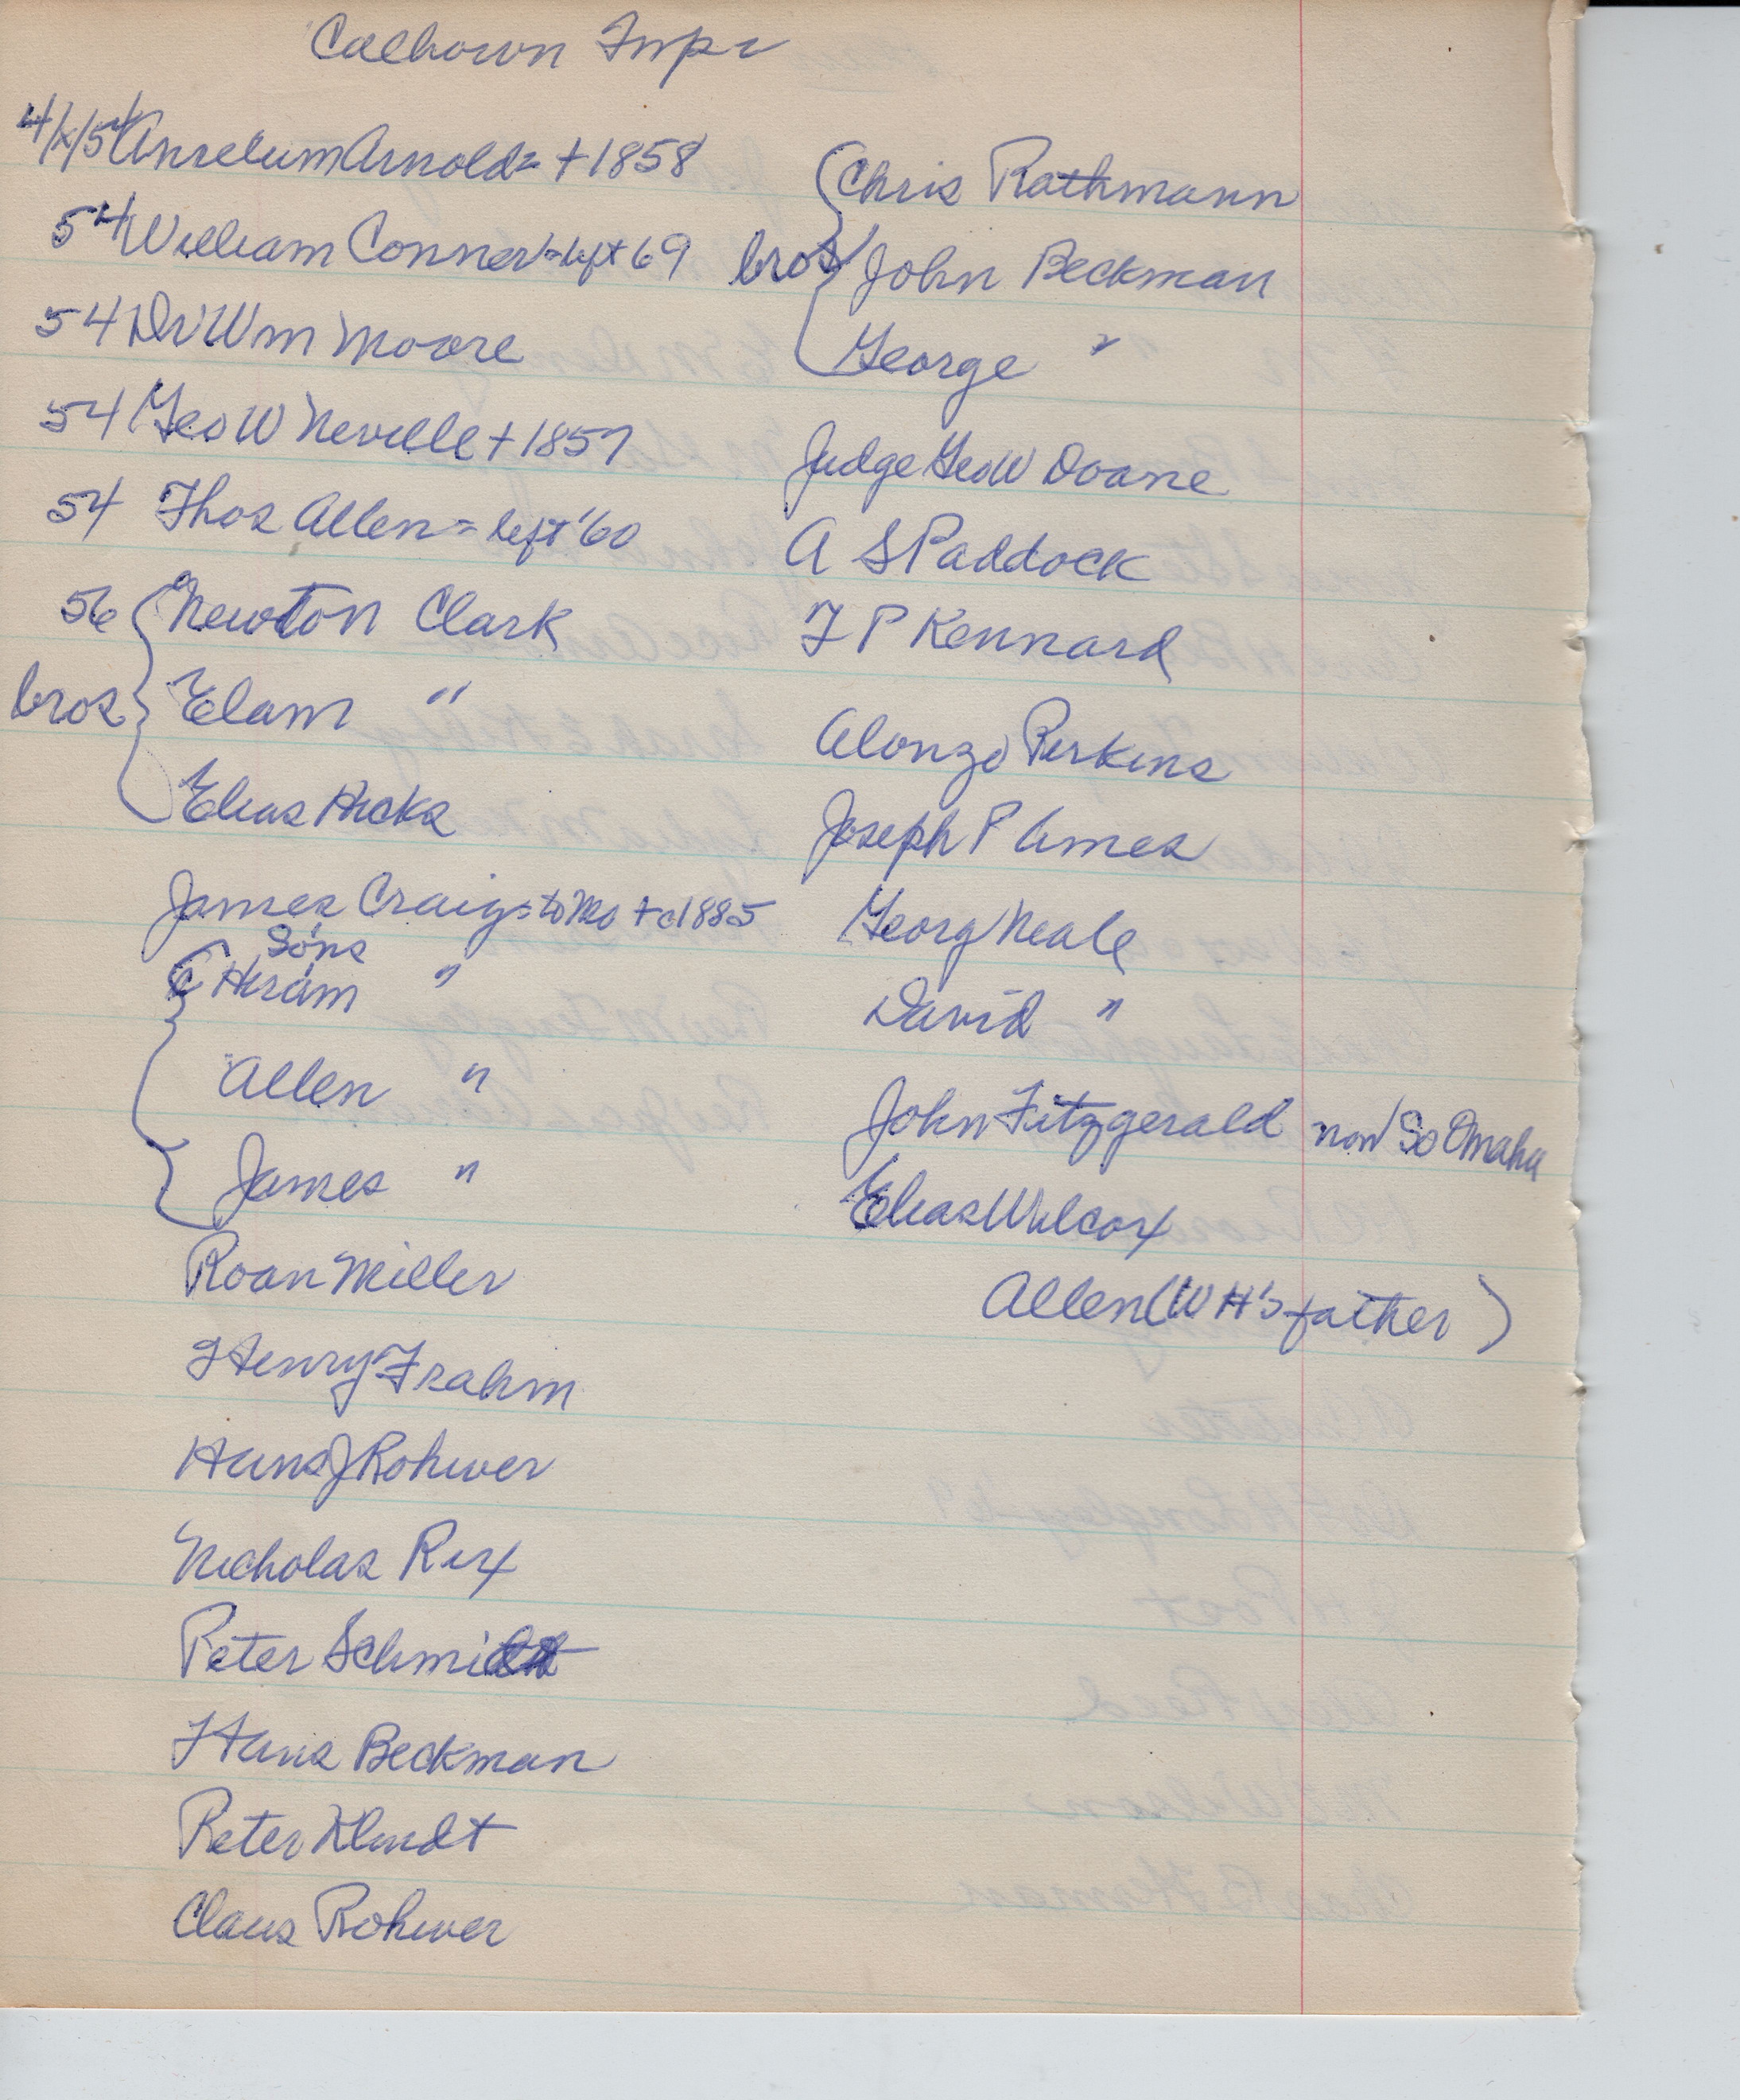 Calhoun Impr
4/x/54 Anselum Arnold = + 1858
54 William Conner = left 69
54 Dr Wm Moore
54 Geo W Neville + 1857
54 Thos Allen = left '60
56 Newton Clark
bros Elam "
Elias Hicks
James Craig = to Mo + c1885
Sons
Hiram "
Allen "
James "
Roan Miller
Henry Frahm
Hans J Rohwer
Nicholas Rix
Peter Schmidt
Hans Beckman
Peter Klindt
Claus Rohwer
Chris Rathmann
bros John Beckman
George "
Judge Geo W Doane
A S Paddock
T P Kennard
Alonzo Perkins
Joseph P Ames
Georg Neale
David "
John Fitzgerald now So Omaha
Elias Wilcox
Allen (W H's father)